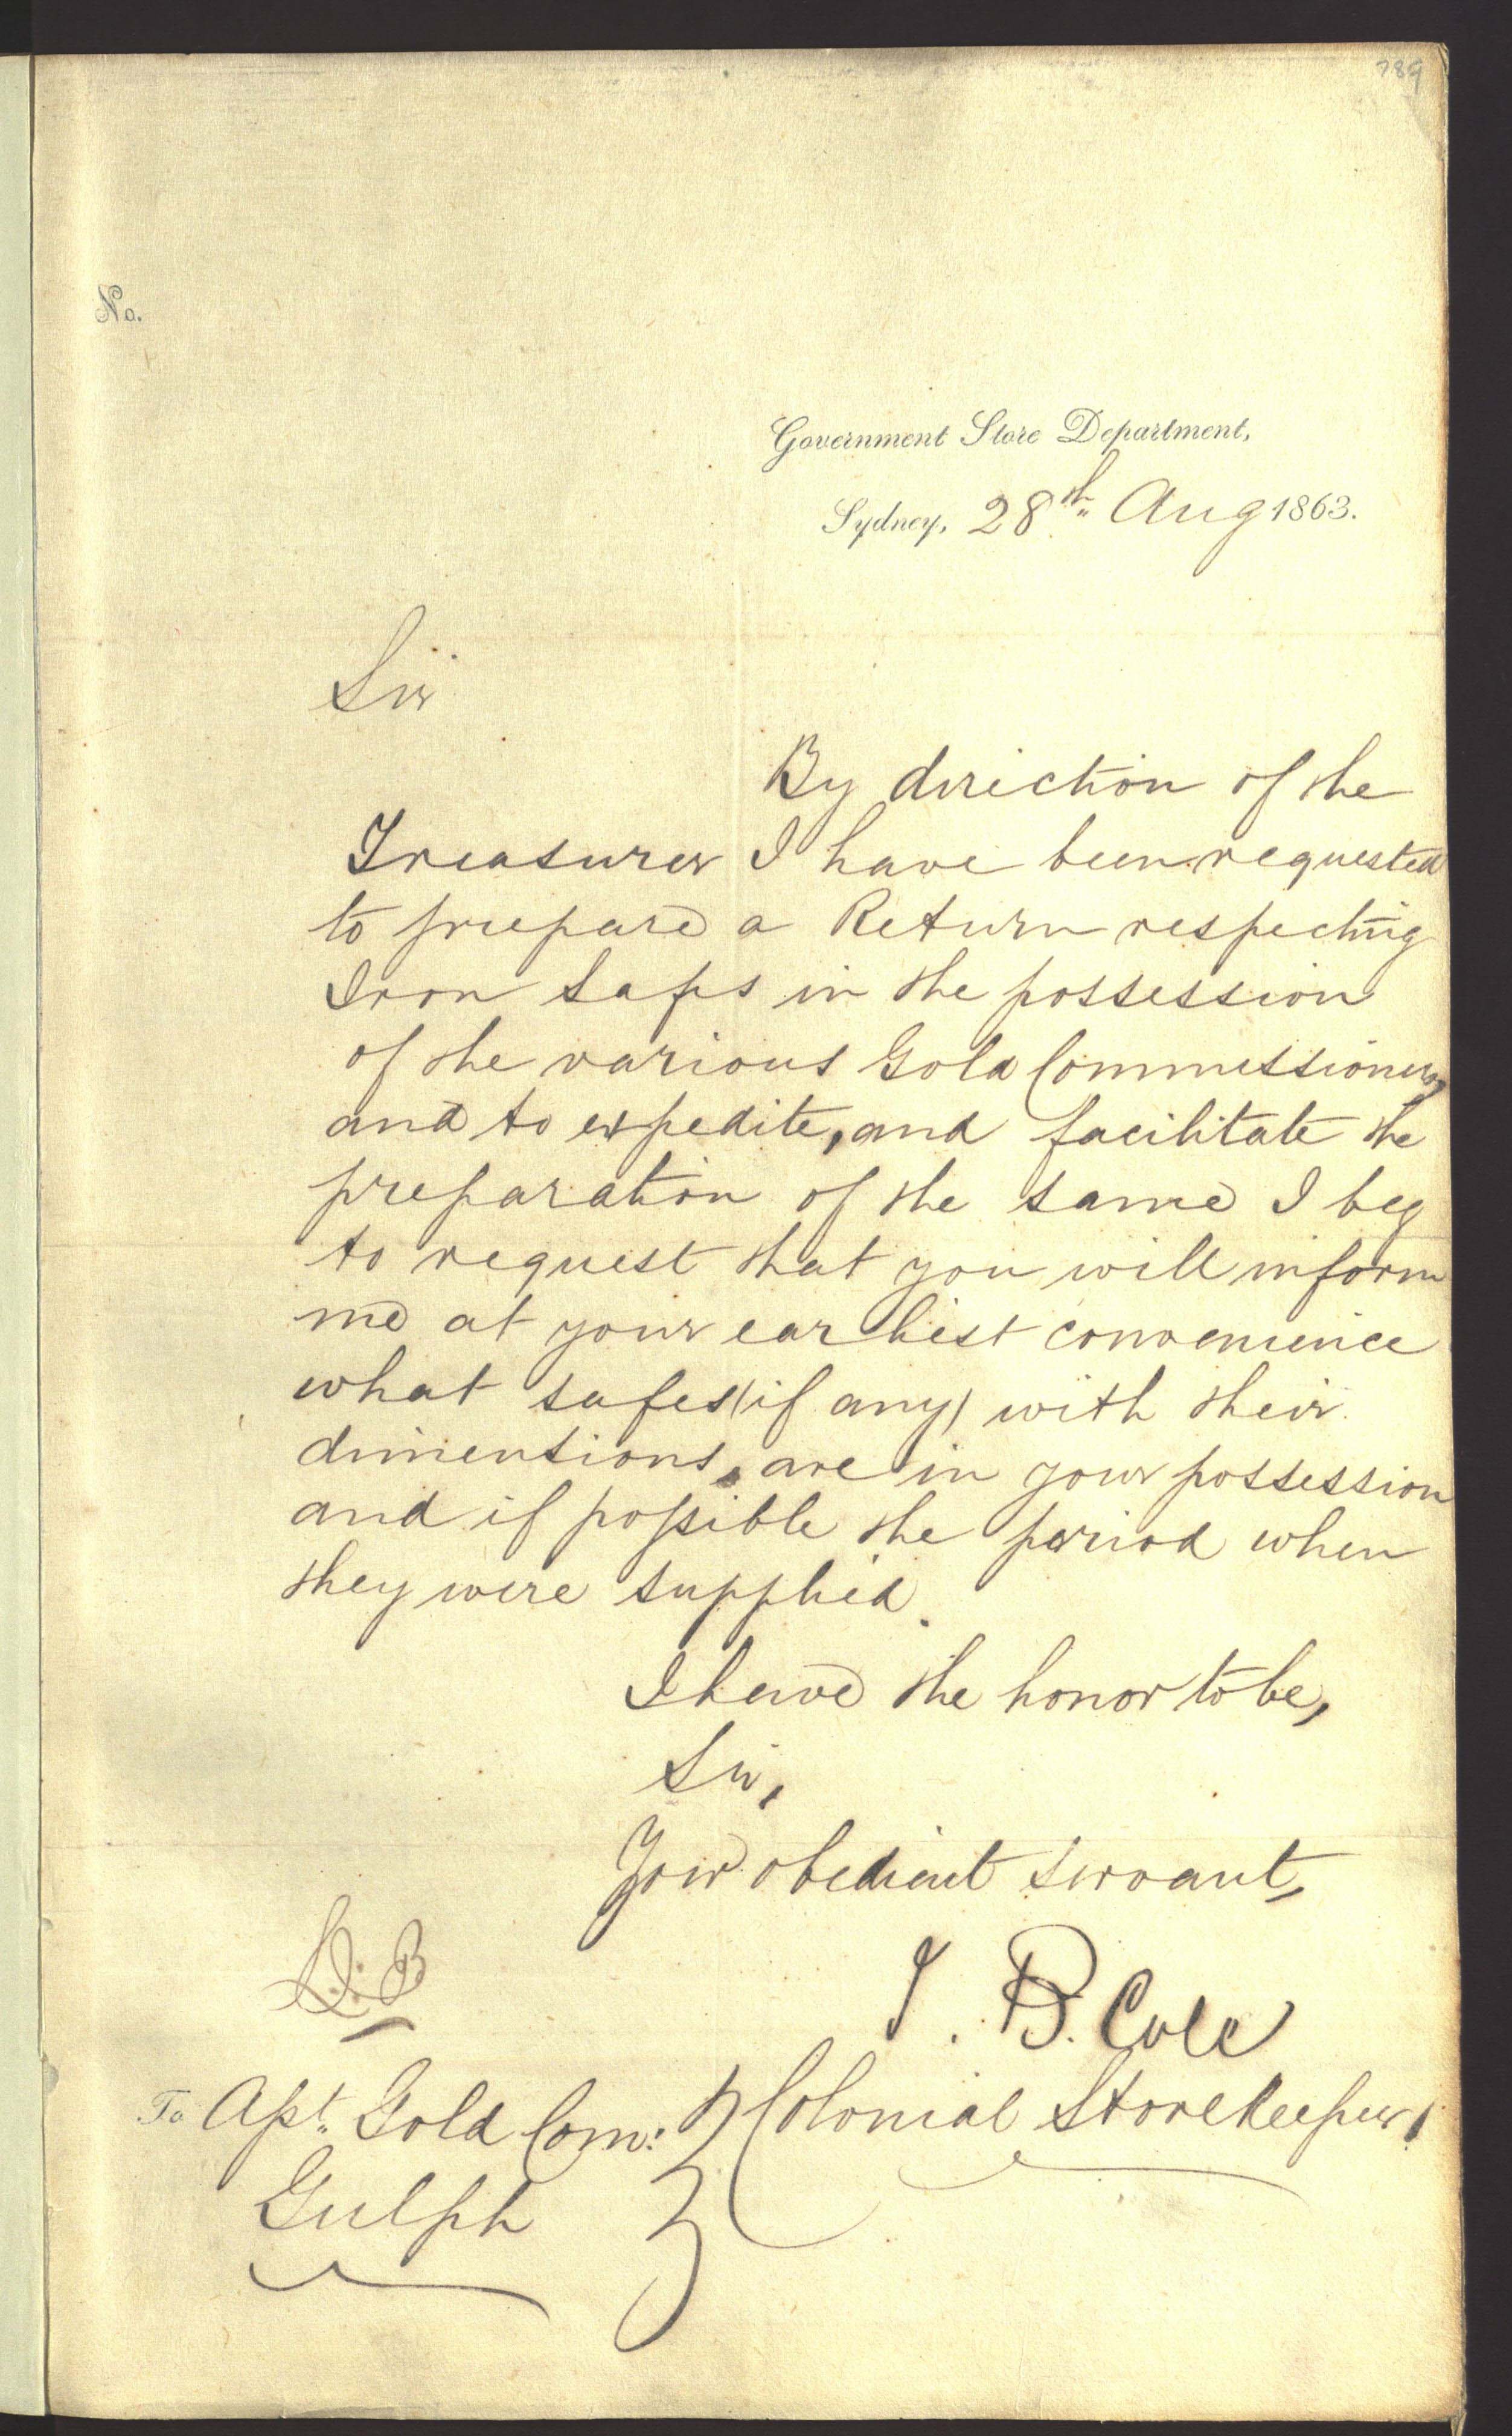 789
No.
Government Store Department,
Sydney, 28th Aug 1863.
Sir
By direction of the
Treasurer I have been requested
to prepare a Return respecting
Iron Safes in the possession
of the various Gold Commissioners,
and to expedite, and facilitate the
preparation of the same I beg
to request that you will inform
me at your earliest convenience
what safes (if any) with their
dimentions, are in your possession
and if possible the period when
they were supplied.
I have the honor to be,
Sir,
Your obedient servant,
B. Cole
To Asst. Gold Com: Colonial Storekeeper.
Gulph